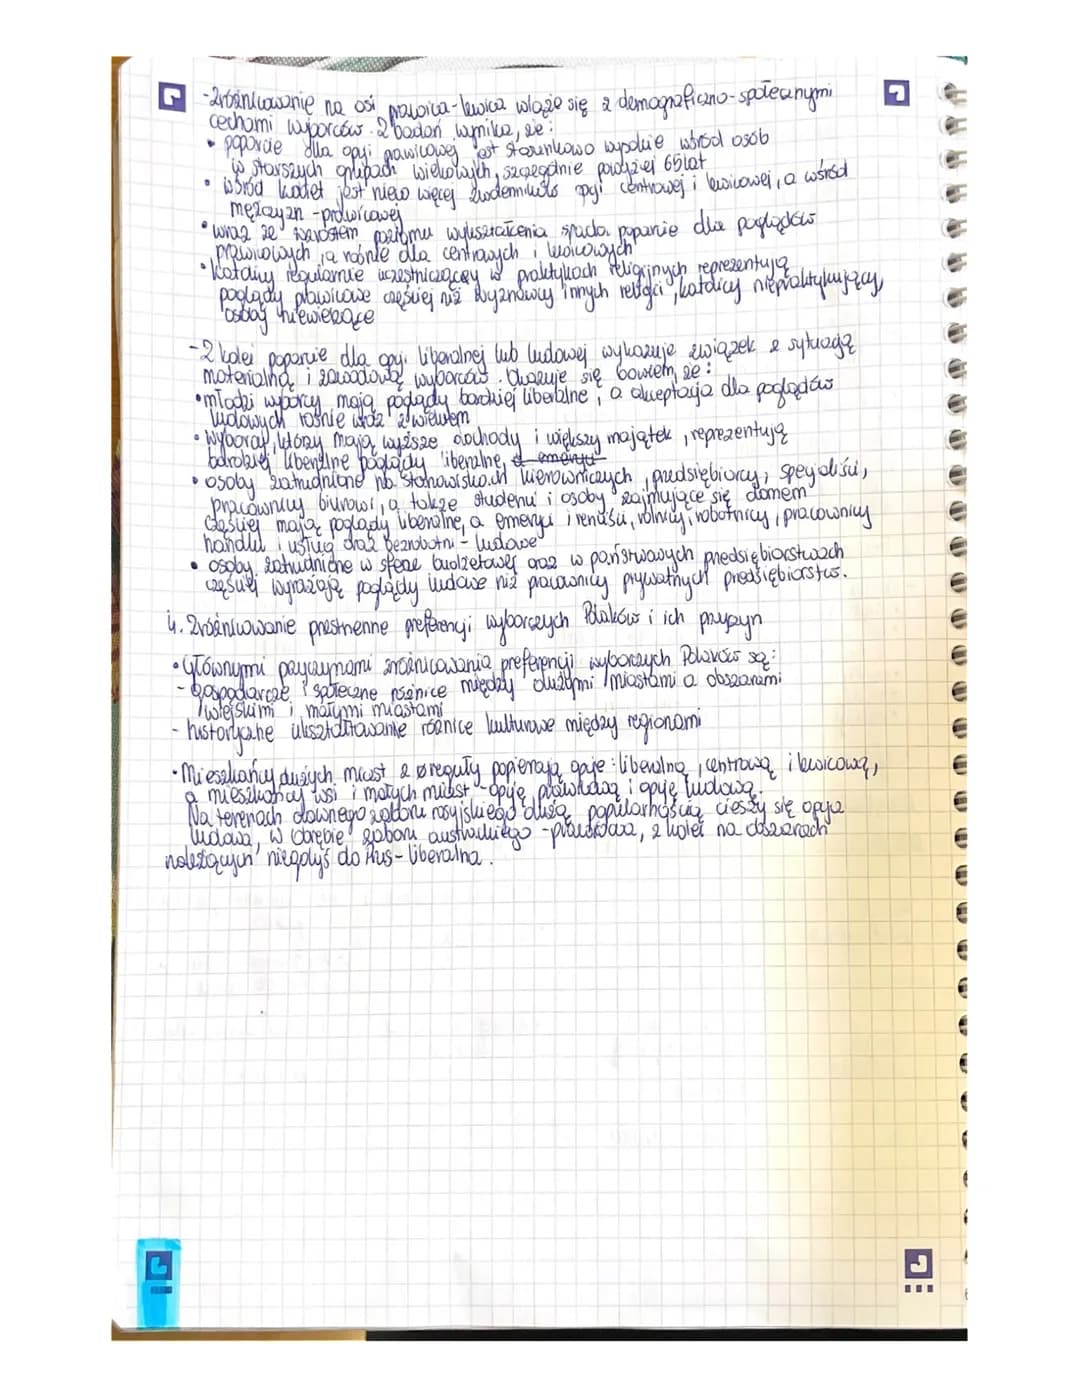 -Zróżnicowanie na osi prawica-lewica wiąże się z demograficzno-społecznymi
cechami wyborców. Z badań wynika, że:
• poparcie dla opcji prawicowej jest stosunkowo wysokie wśród osób
w starszych grupach wiekowych, szczególnie powyżej 65 lat
• wśród kobiet jest nieco więcej zwolenników opcji centrowej i lewicowej, a wśród
mężczyzn - prawicowej
• wraz ze wzrostem poziomu wykształcenia spada poparcie dla poglądów
prawicowych, a rośnie dla centrowych i lewicowych
• katolicy regularnie uczestniczący w praktykach religijnych reprezentują
poglądy prawicowe częściej niż wyznawcy innych religii, katolicy niepraktykujący,
osoby niewierzące
- Z kolei poparcie dla opcji liberalnej lub ludowej wykazuje związek z sytuacją
materialną i zawodową wyborców. Okazuje się bowiem, że:
• młodzi wyborcy mają poglądy bardziej liberalne, a akceptacja dla poglądów
ludowych rośnie wraz z wiekiem
• wyborcy, którzy mają wyższe dochody i większy majątek, reprezentują
bardziej liberalne poglądy liberalne, a emeryci
• osoby zatrudnione na stanowiskach kierowniczych, przedsiębiorcy, specjaliści,
pracownicy biurowi, a także studenci i osoby zajmujące się domem
częściej mają poglądy liberalne, a emeryci i renciści, rolnicy, robotnicy, pracownicy
handlu i usług oraz bezrobotni - ludowe
• osoby zatrudnione w sferze budżetowej oraz w państwowych przedsiębiorstwach
częściej wyrażają poglądy ludowe niż pracownicy prywatnych przedsiębiorstw.
4. Zróżnicowanie przestrzenne preferencji wyborczych Polaków i ich przyczyn
• Głównymi przyczynami zróżnicowania preferencji wyborczych Polaków są:
- gospodarcze i społeczne różnice między dużymi miastami a obszarami
wiejskimi i małymi miastami
- historycznie ukształtowanie różnice kulturowe między regionami
• Mieszkańcy dużych miast z reguły popierają opcje: liberalną, centrową i lewicową,
a mieszkańcy wsi i małych miast - opcję prawicową i opcję ludową.
Na terenach dawnego zaboru rosyjskiego dużą popularnością cieszy się opcja
ludowa, w obrębie zaboru austriackiego - prawicowa, z kolei na obszarach
należących niegdyś do Prus - liberalna.